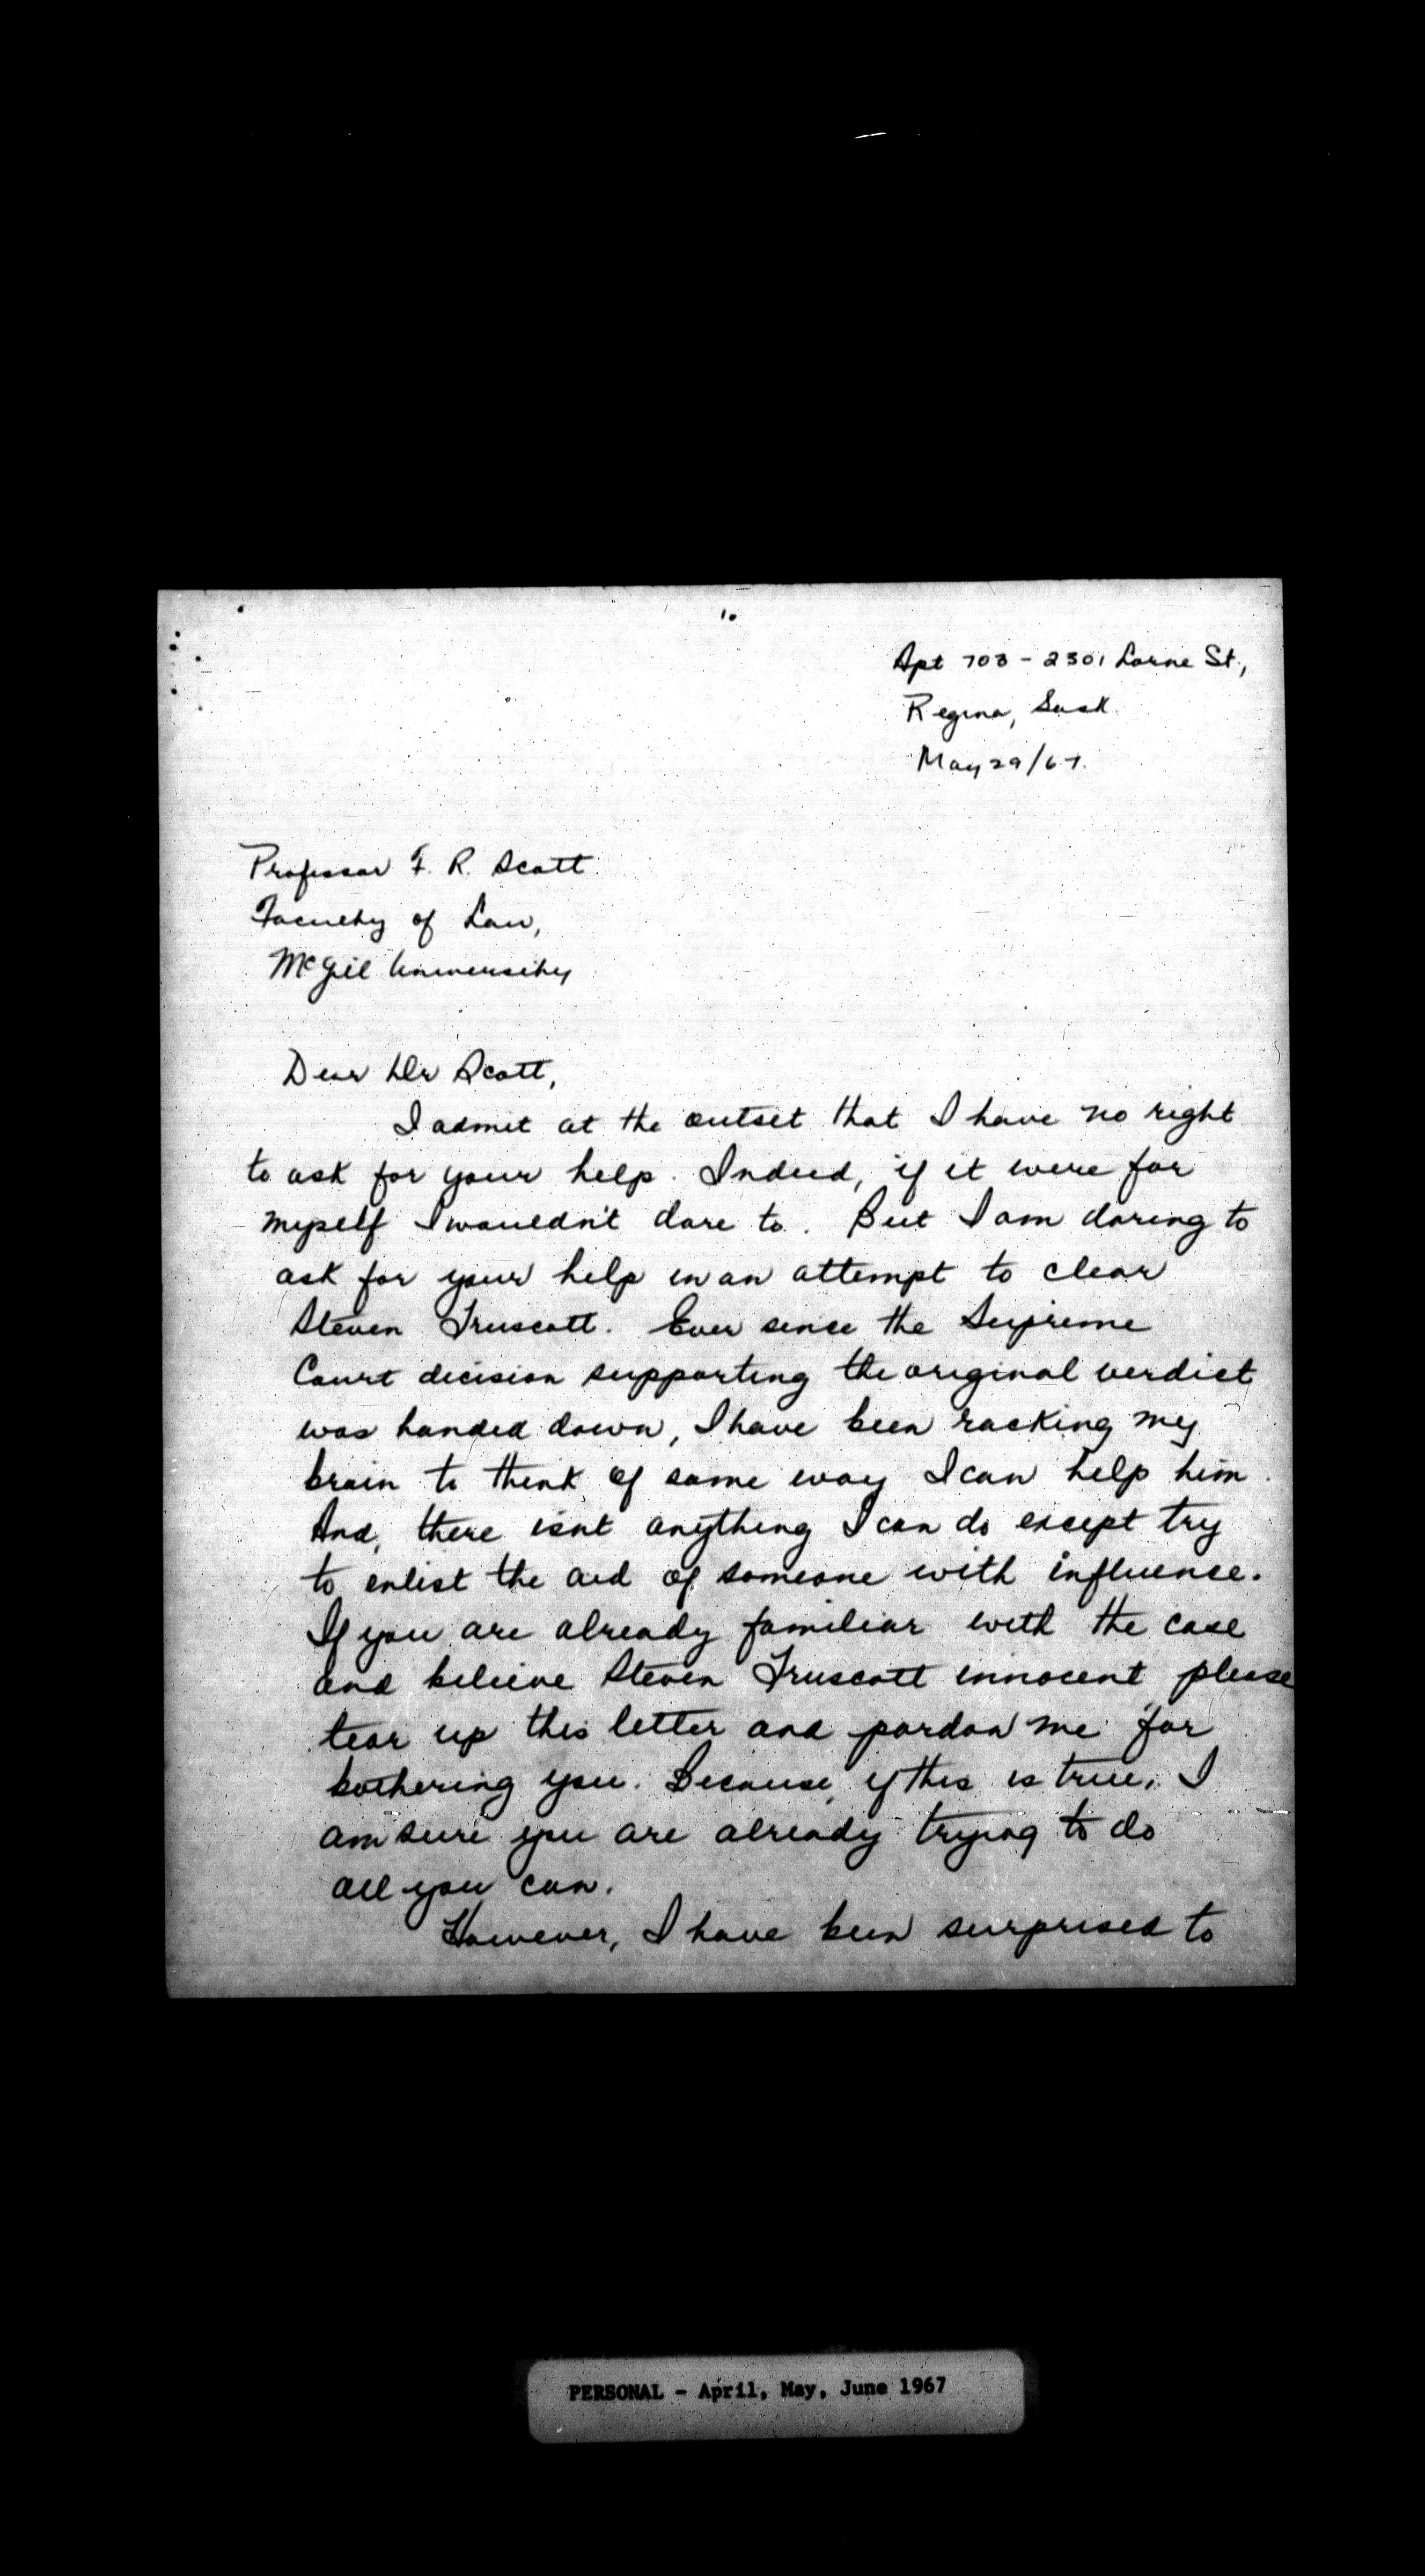 1.
Apt 703 - 2301 Lorne St.,
Regina, Sask.
May 29/67.
Professor F. R. Scott.
Faculty of Law,
McGill University
Dear Dr Scott,
I admit at the outset that I have no right
to ask for your help. Indeed, if it were for
myself I wouldn't dare to. But I am daring to
ask for your help in an attempt to clear
Steven Truscott. Ever since the Supreme
Court decision supporting the original verdict
was handed down, I have been racking my
brain to think of some way I can help him.
And, there isnt anything I can do except try
to enlist the aid of someone with influence.
If you are already familiar with the case
and believe Steven Truscott innocent, please
tear up this letter and pardon me for
bothering you. Because, if this is true, I
am sure you are already trying to do
all you can.
However, I have been surprised to
PERSONAL - April, May, June 1967